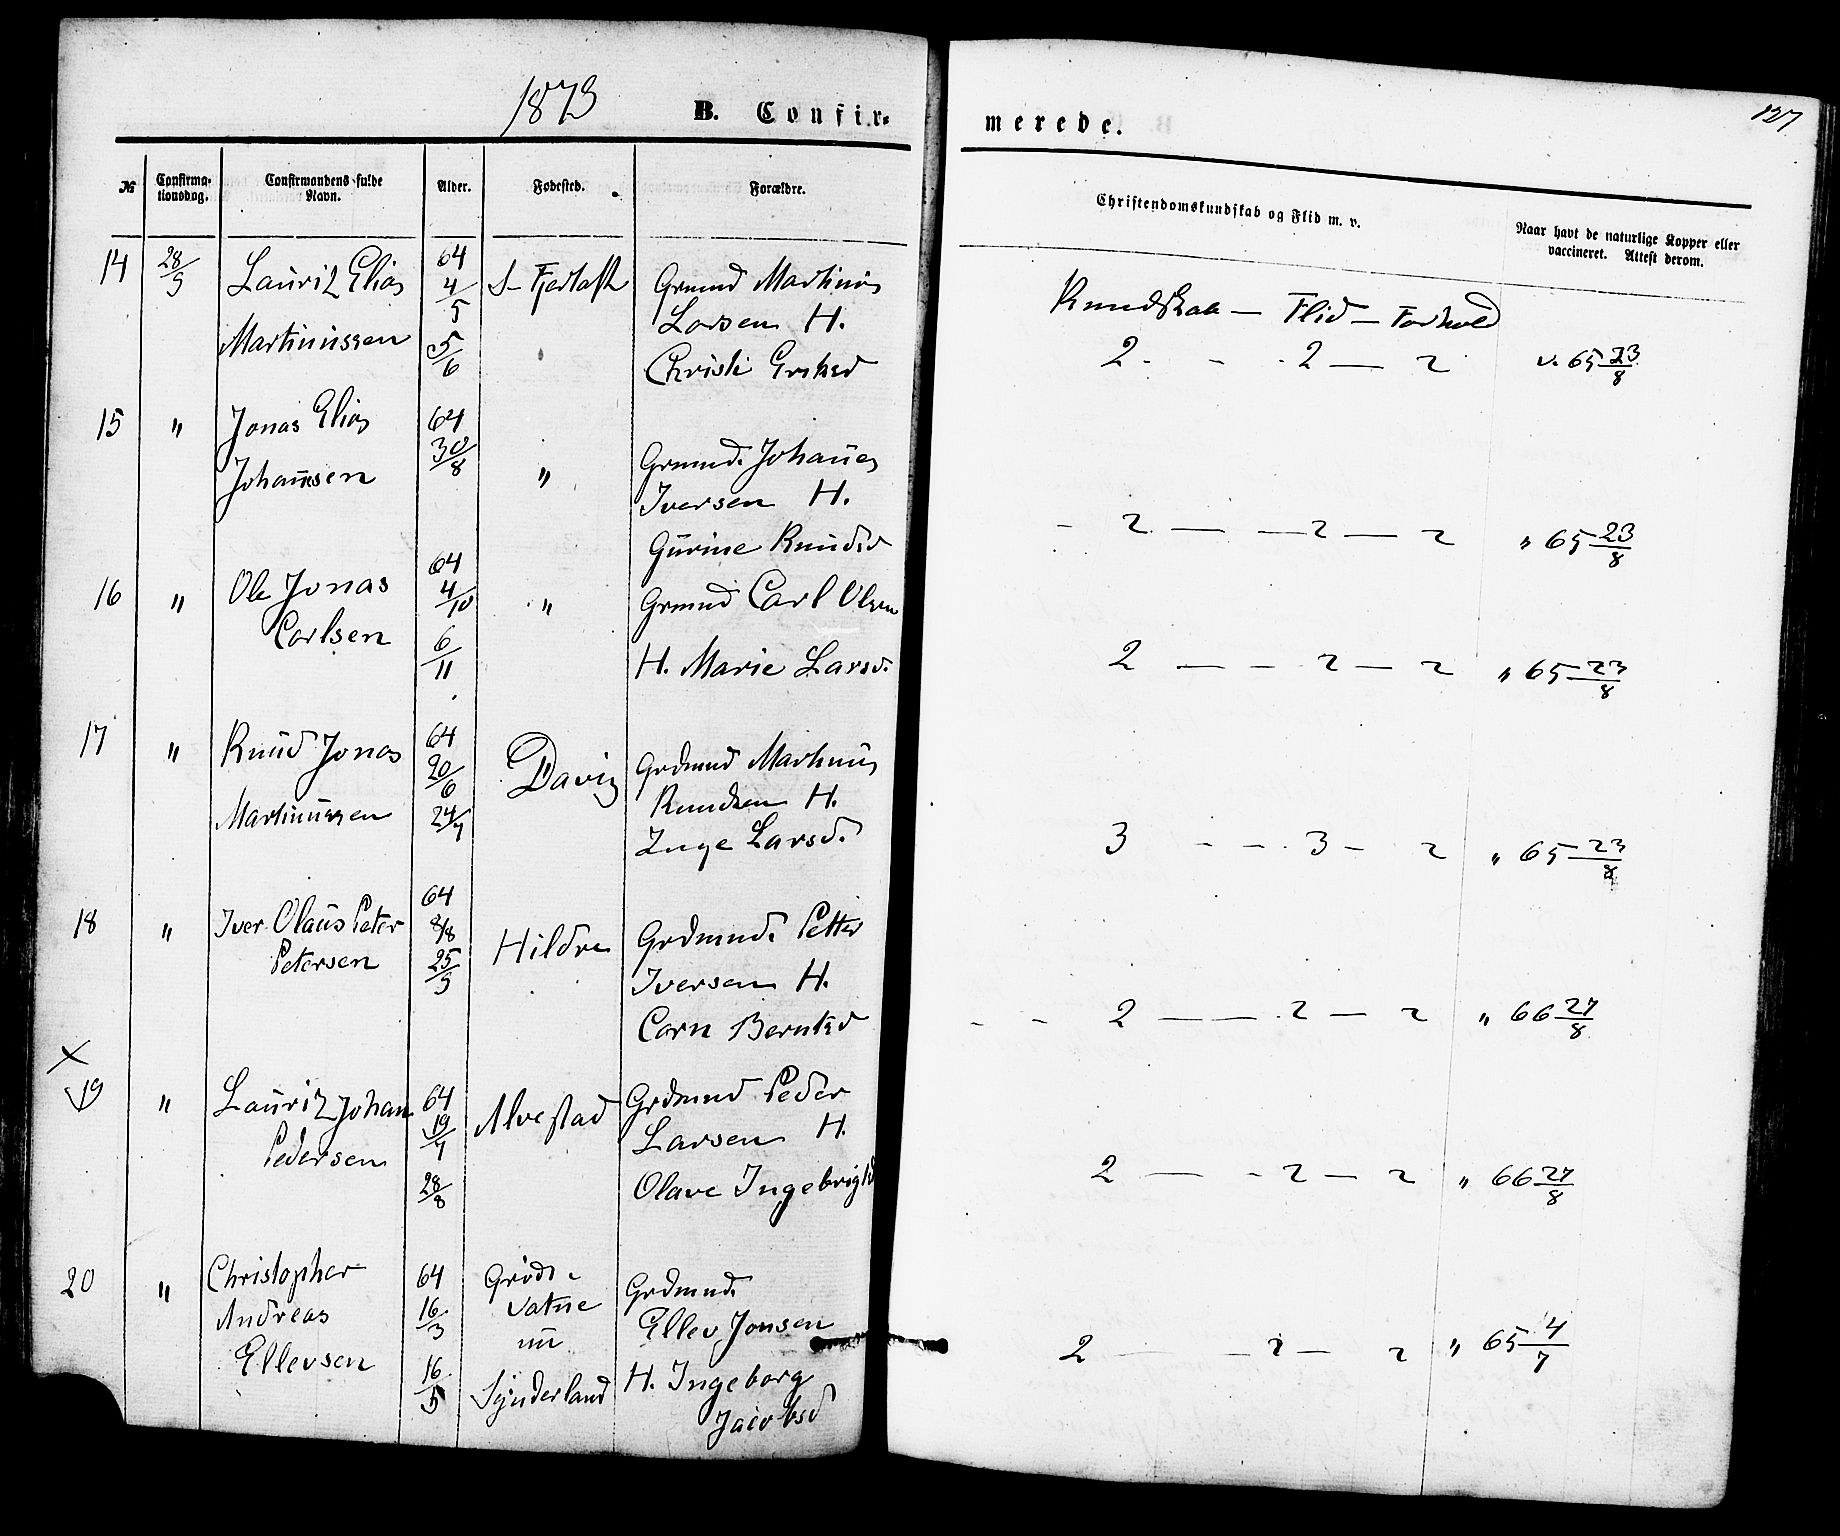 1873 B. Confir-
merede. 127
№ Confirma-tionsdag. Confirmandens fulde Navn. Alder. Fødested. Forældre.
Christendomskundskab og Flid m. v. Naar havt de naturlige Kopper eller vaccineret. Attest derom.
14 28/9 Lauritz Elias 64 4/5 S- Fjørtoft Grmnd Martinus
Larsen H.
Martinussen 5/6 Christi
Kundskab — Flid — Forhold
2 - - 2 — 2 v. 65 23/8
15 " Jonas Elias 64 30/8 " Grmnd. Johannes
Johannsen Iversen H.
Gurine Knudsd
2 — — 2 — 2 " 65 23/8
16 " Ole Jonas 64 4/10 " Grmnd Carl Olsen
Carlsen 6/11 H. Marie Larsd.
2 — - 2 — 2 " 65 23/8
17 " Knud Jonas 64 20/6 Davig Grdmnd Martinus
Martinussen 24/7 Knudsen H.
Inge Larsd.
3 - - 3 - 2 " 65 23/8
18 " Iver Olaus Peter 64 8/8 Hildre Grdmnd. Petter
Petersen 25/9 Iversen H.
Carn Berntsd
- - 2 — — 2 — 2 " 66 27/8
×
19 " Lauritz Johan 64 19/7 Alvestad Grdmnd Peder
Pedersen 28/8 Larsen H.
Olave Ingebrigtsd
2 — - 2 — 2 " 66 27/8
20 " Christopher 64 Grøds- Grdmnd.
Andreas 16/3 vatne Ellev Jonsen
Ellevsen 16/5 nu H. Ingeborg
Synderland Jacobsd
2 — - 2 — 2 " 65 4/7